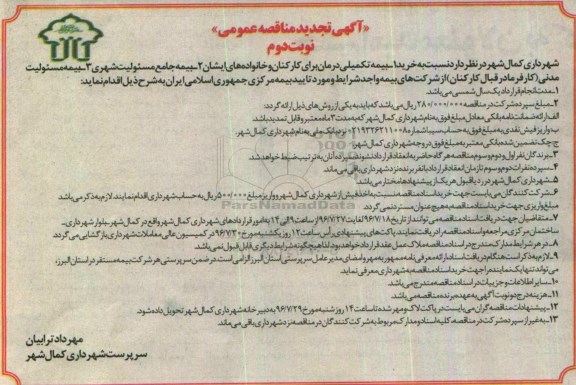 «آگهی تجدید مناقصه عمومی»
نوبت دوم
شهرداری کمال شهر در نظر دارد نسبت به خرید ۱-بیمه تکمیلی درمان برای کارکنان و خانواده های ایشان ۲-بیمه جامع مسئولیت شهری ۳-بیمه مسئولیت
مدنی (کارفرما در قبال کارکنان) از شرکت های بیمه واجد شرایط و مورد تایید بیمه مرکزی جمهوری اسلامی ایران به شرح ذیل اقدام نماید:
۱-مدت انجام قرارداد یک سال شمسی می باشد.
۲-مبلغ سپرده شرکت در مناقصه ۲۸۰/۰۰۰/۰۰۰ ریال می باشد که باید به یکی از روش های ذیل ارائه گردد:
الف: ارائه ضمانت نامه بانکی معادل مبلغ فوق به نام شهرداری کمال شهر که به مدت ۳ ماه معتبر و قابل تمدید باشد
ب: واریز فیش نقدی به مبلغ فوق به حساب سیبا شماره ۰۲۱۹۳۲۶۲۱۱۰۰۸ نزد بانک ملی به نام شهرداری کمال شهر.
ج: چک تضمین شده بانکی معتبر به مبلغ فوق در وجه شهرداری کمال شهر:
۳-برندگان نفر اول و دوم و سوم مناقصه هرگاه حاضر به انعقاد قرارداد نشوند سپرده آنان به ترتیب ضبط خواهد شد.
۴-سپرده نفرات دوم و سوم تا زمان انعقاد قرارداد با نفر برنده نزد شهرداری باقی می ماند.
۵-شهرداری کمال شهر در رد یا قبول هر یک از پیشنهادها مختار می باشد
۶-شرکت کنندگان می بایست جهت دریافت اسناد مناقصه نسبت به اخذ فیش از شهرداری کمال شهر و واریز مبلغ ۵۰۰/۰۰۰ ریال به حساب شهرداری اقدام نمایند. لازم به ذکر می باشد
مبلغ واریزی جهت خرید اسناد مناقصه به هیچ عنوان مسترد نمی گردد
۷-متقاضیان جهت دریافت اسناد مناقصه می توانند از تاریخ ۹۶/۷/۱۸ لغایت ۹۶/۷/۲۷ از ساعت ۹ الی ۱۴ به امور قراردادهای شهرداری کمال شهر واقع در کمال شهر-بلوار شهرداری-
ساختمان مرکزی مراجعه و اسناد مناقصه را دریافت نمایند. پاکت های پیشنهادی رأس ساعت ۱۲ روز یکشنبه مورخ ۹۶/۷/۳۰ در کمیسیون عالی معاملات شهرداری بازگشایی می گردد
۸-در هر شرایط مدارک مندرج در اسناد مناقصه ملاک عمل عقد قرارداد خواهد بود. لذا هیچگونه شرایط دیگری قابل قبول نمی باشد
۹-لازم به ذکر است هنگام دریافت اسناد ارائه معرفی نامه ممهور به مهر و امضای مدیر عامل سرپرستی استان البرز الزامی است. در ضمن سرپرستی هر شرکت بیمه مستقر در استان البرز،
می تواند تنها یک نماینده را جهت خرید اسناد مناقصه به شهرداری معرفی نماید.
۱۰-سایر اطلاعات و جزییات در اسناد مناقصه مندرج می باشد.
۱۱-هزینه درج دو نوبت آگهی به عهده برنده مناقصه می باشد.
۱۲-پیشنهادات مناقصه گران می بایست در پاکت لاک و مهر شده تا ساعت ۱۴ روز شنبه مورخ ۹۶/۷/۲۹ به دبیرخانه شهرداری کمال شهر تحویل داده شود.
۱۳-به غیر از سپرده شرکت در مناقصه، کلیه اسناد و مدارک مربوط به شرکت کنندگان در مناقصه نزد شهرداری باقی می ماند
مهرداد ترابیان
سرپرست شهرداری کمال شهر
ParsNamadData